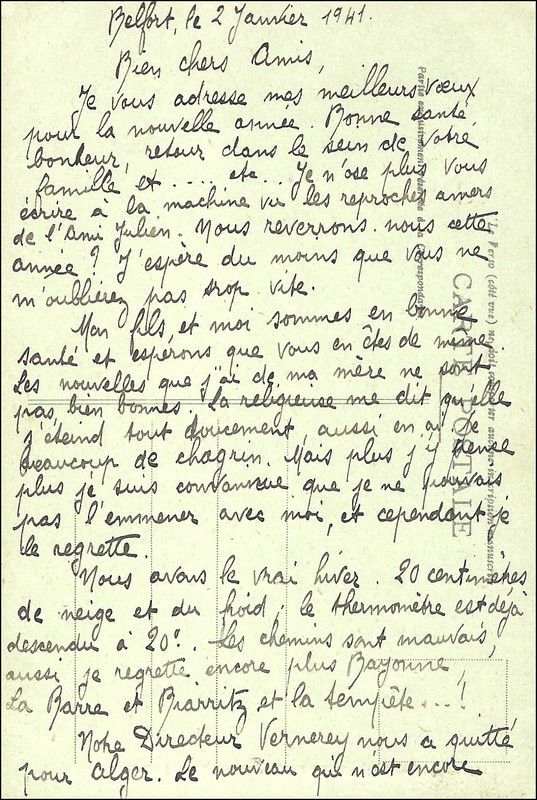 Belfort, le 2 Janvier 1941.
Bien chers Amis,
Je vous adresse mes meilleurs vœux
pour la nouvelle année. Bonne santé
bonheur, retour dans le sein de votre
famille et .... etc... Je n'ose plus vous
écrire à la machine vu les reproches amers
de l'Ami Julien. Nous reverrons-nous cette
année ? J'espère du moins que vous ne
m'oublierez pas trop vite.
Mon fils et moi sommes en bonne
santé et espérons que vous en êtes de même.
Les nouvelles que j'ai de ma mère ne sont
pas bien bonnes. La religieuse me dit qu'elle
s'éteind tout doucement, aussi en ai-je
beaucoup de chagrin. Mais plus j'y pense
plus je suis convaincue que je ne pouvais
pas l'emmener avec moi, et cependant je
le regrette.
Nous avons le vrai hiver. 20 centimètres
de neige et du froid; le thermomètre est déjà
descendu à 20°. Les chemins sont mauvais,
aussi je regrette encore plus Bayonne,
La Barre et Biarritz et la tempête...!
Notre Directeur Vernerey nous a quitté
pour Alger. Le nouveau qui n'est encore
CARTE POSTALE
Le Verso (côté vue)
Partie exclusivement réservée à la Correspondance